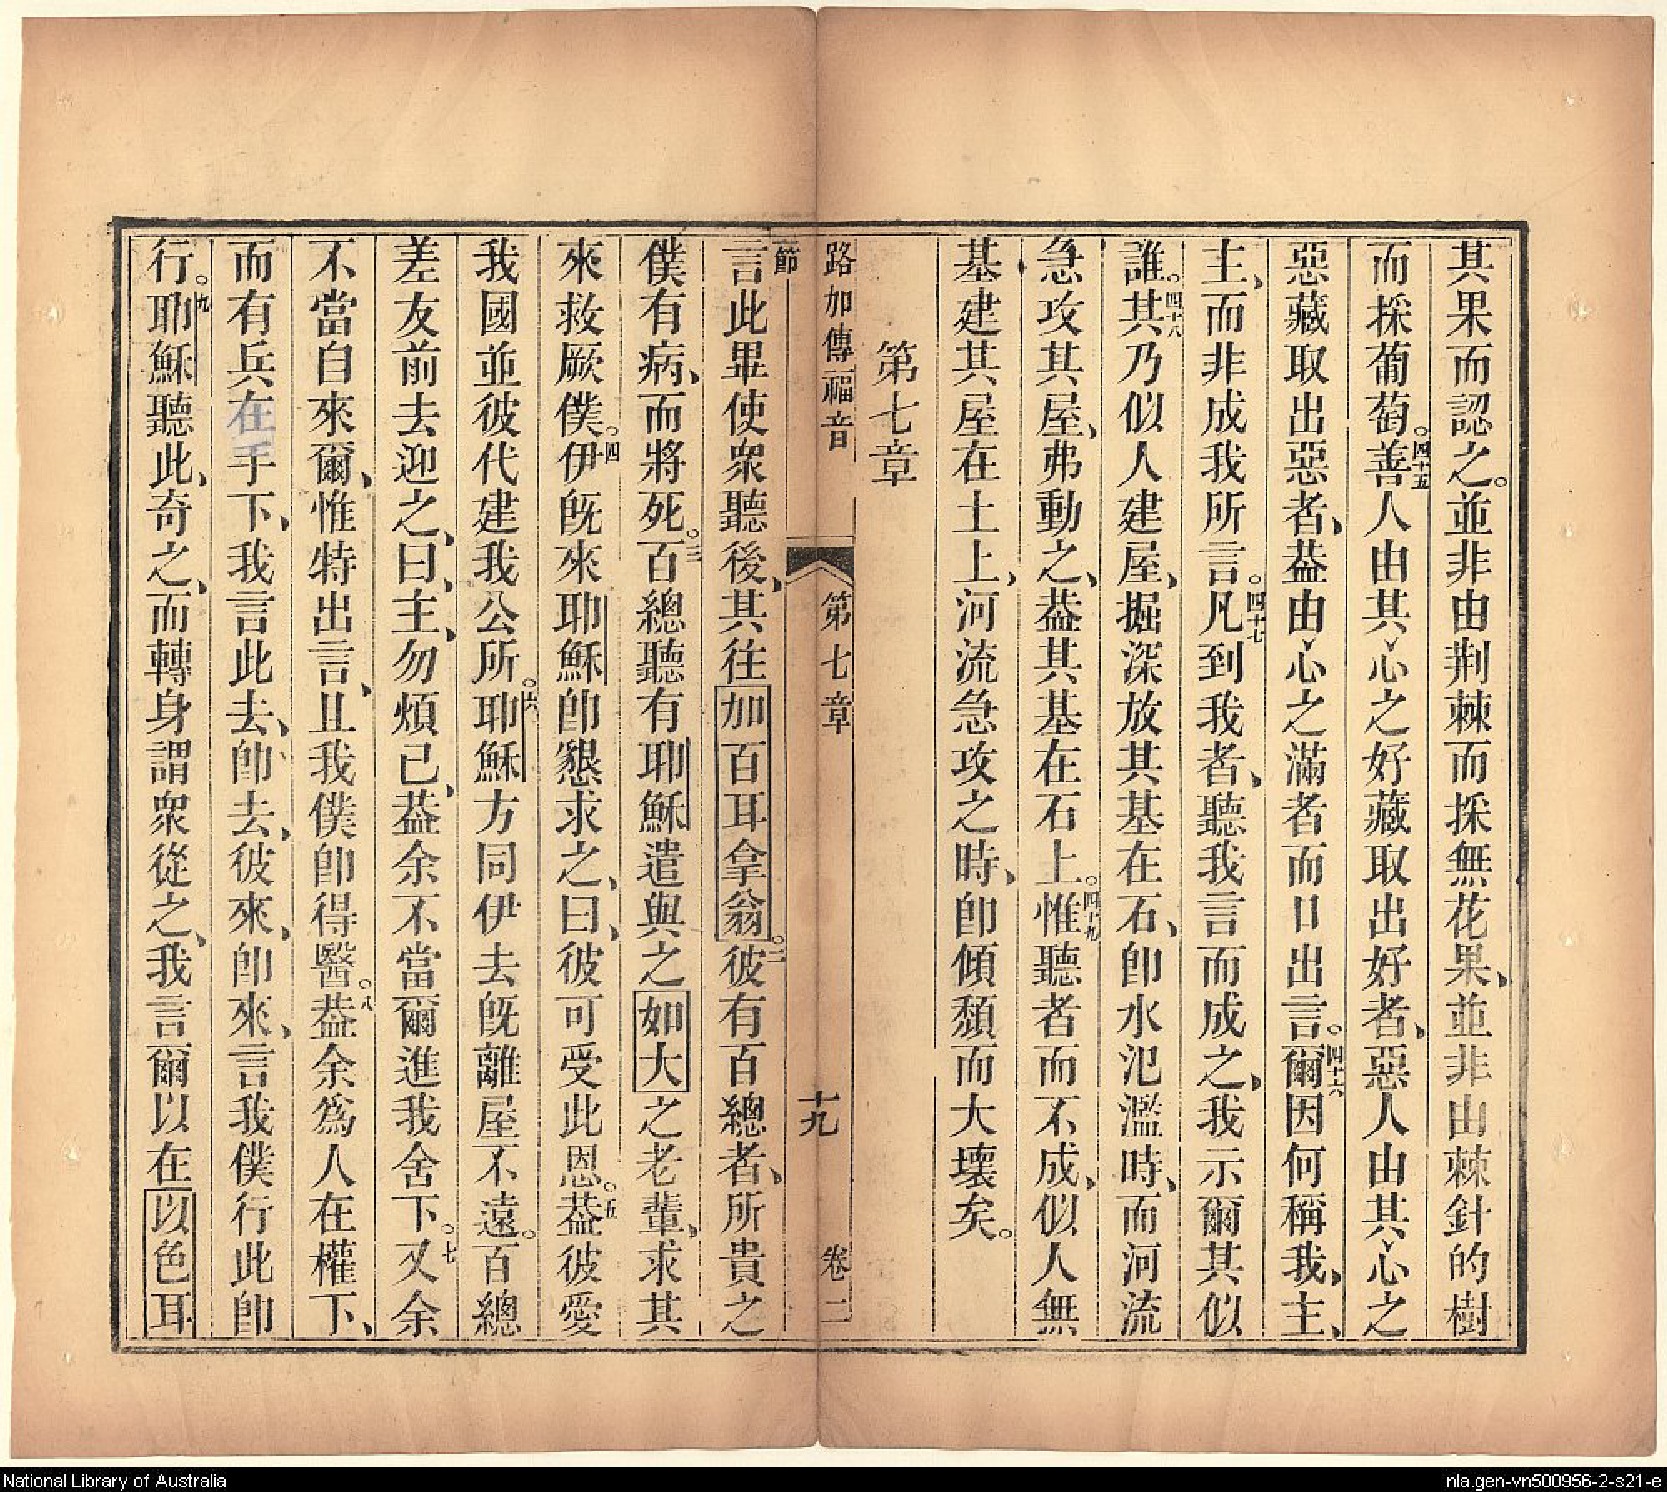 其果而認之。並非由荆棘而採無花果、並非由棘針的樹
而採葡萄。四十五善人由其心之好藏取出好者、惡人由其心之
惡藏取出惡者、葢由心之滿者而口出言。四十六爾因何稱我、主、
主、而非成我所言。四十七凡到我者、聽我言而成之、我示爾其似
誰。四十八其乃似人建屋、掘深放其基在石、卽水氾濫時、而河流
急攻其屋、弗動之、葢其基在石上。四十九惟聽者而不成、似人無
基建其屋在土上、河流急攻之時、卽傾頹而大壞矣。
第七章
路加傳福音 第七章 十九 卷二
節
言此畢使衆聽後、其往加百耳拿翁。二彼有百總者、所貴之
僕有病、而將死。三百總聽有耶穌遣與之如大之老輩、求其
來救厥僕。四伊旣來耶穌卽懇求之、曰、彼可受此恩。五葢彼愛
我國並彼代建我公所。六耶穌方同伊去旣離屋不遠。百總
差友前去迎之、曰、主、勿煩已、葢余不當爾進我舍下。七又余
不當自來爾、惟特出言、且我僕卽得醫。八葢余為人在權下、
而有兵在手下、我言此去、卽去、彼來、卽來、言我僕行此卽
行。九耶穌聽此、奇之、而轉身謂衆從之、我言爾以在以色耳
National Library of Australia
nla.gen-vn500956-2-s21-e